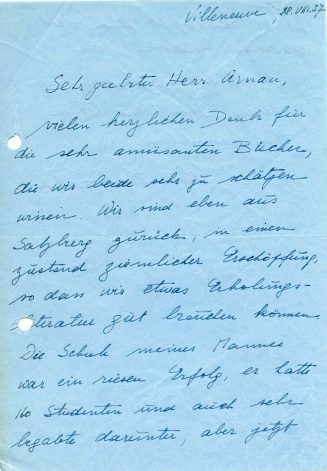 Villeneuve, 28.VIII.57
Sehr geehrter Herr Arnau,
vielen herzlichen Dank für
die sehr amüsanten Bücher,
die wir beide sehr zu schätzen
wissen. Wir sind eben aus
Salzburg zurück, in einen
zustand ziemlicher Erschöpfung,
so dass wir etwas Erholungs-
literatur gut brauchen können
Die Schule meines Mannes
war ein riesen Erfolg, er hatte
160 Studenten und auch sehr
begabte darunter, aber jetzt